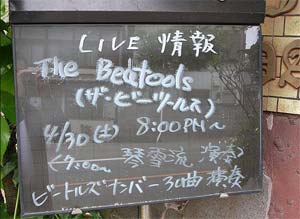 LIVE 情報
The Beatools
(ザ・ビーツールス)
4/30(土) 8:00PM〜
演奏
ビートルズナンバー30曲演奏